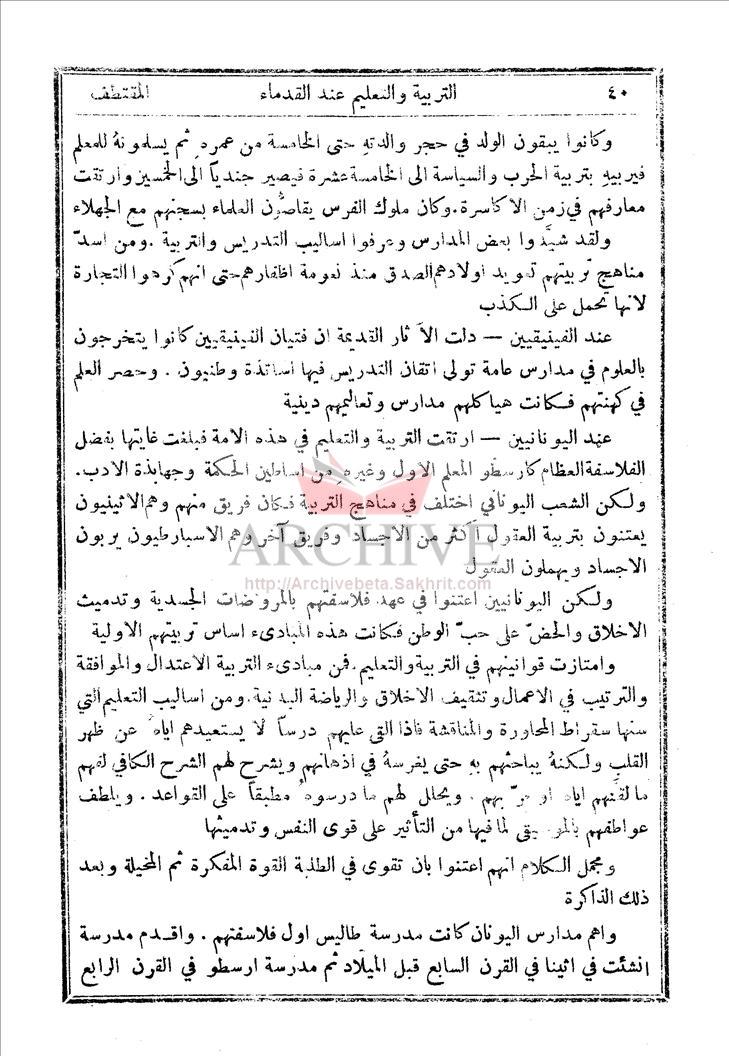 ٤٠ التربية والتعليم عند القدماء المقتطف
وكانوا يبقون الولد في حجر والدتهِ حتى الخامسة من عمرهِ ثم يسلمونهُ للمعلم
فيربيهِ بتربية الحرب والسياسة الى الخامسة عشرة فيصير جنديًّا الى الخمسين وارتقت
معارفهم في زمن الاكاسرة. وكان ملوك الفرس يقاصُّون العلماء بسجنهم مع الجهلاء
ولقد شيَّدوا بعض المدارس وعرفوا اساليب التدريس والتربية. ومن اسدّ
مناهج تربيتهم تعويد اولادهم الصدق منذ نعومة اظفارهم حتى انهم كرهوا التجارة
لانها تحمل على الكذب
عند الفينيقيين — دلت الآثار القديمة ان فتيان الفينيقيين كانوا يتخرجون
بالعلوم في مدارس عامة تولى اتقان التدريس فيها اساتذة وطنيون. وحصر العلم
في كهنتهم فكانت هياكلهم مدارس وتعاليمهم دينية
عند اليونانيين — ارتقت التربية والتعليم في هذه الامة فبلغت غايتها بفضل
الفلاسفة العظام كارسطو المعلم الاول وغيرهِ من اساطين الحكمة وجهابذة الادب.
ولكن الشعب اليوناني اختلف في مناهج التربية فكان فريق منهم وهم الاثينيون
يعتنون بتربية العقول اكثر من الاجساد وفريق آخر وهم الاسبارطيون يربون
الاجساد ويهملون العقول
ARCHIVE
http://Archivebeta.Sakhrit.com
ولكن اليونانيين اعتنوا في عهد فلاسفتهم بالمروضات الجسدية وتدميث
الاخلاق والحضّ على حبّ الوطن فكانت هذه المبادىء اساس تربيتهم الاولية
وامتازت قوانينهم في التربية والتعليم. فمن مبادىء التربية الاعتدال والموافقة
والترتيب في الاعمال وتثقيف الاخلاق والرياضة البدنية. ومن اساليب التعليم التي
سنها سقراط المحاورة والمناقشة فاذا التى عليهم درساً لا يستعيدهم اياهُ عن ظهر
القلب ولكنهُ يباحثهم بهِ حتى يغرسهُ في اذهانهم ويشرح لهم الشرح الكافي لفهم
ما لقَّنهم اياه او مرّنهم. ويحلل لهم ما درسوهُ مطبقاً على القواعد. ويلطف
عواطفهم بالموسيقى لما فيها من التأثير على قوى النفس وتدميثها
ومجمل الكلام انهم اعتنوا بان تقوى في الطلبة القوة المفكرة ثم المخيلة وبعد
ذلك الذاكرة
واهم مدارس اليونان كانت مدرسة طاليس اول فلاسفتهم. واقدم مدرسة
انشئت في اثينا في القرن السابع قبل الميلاد ثم مدرسة ارسطو في القرن الرابع